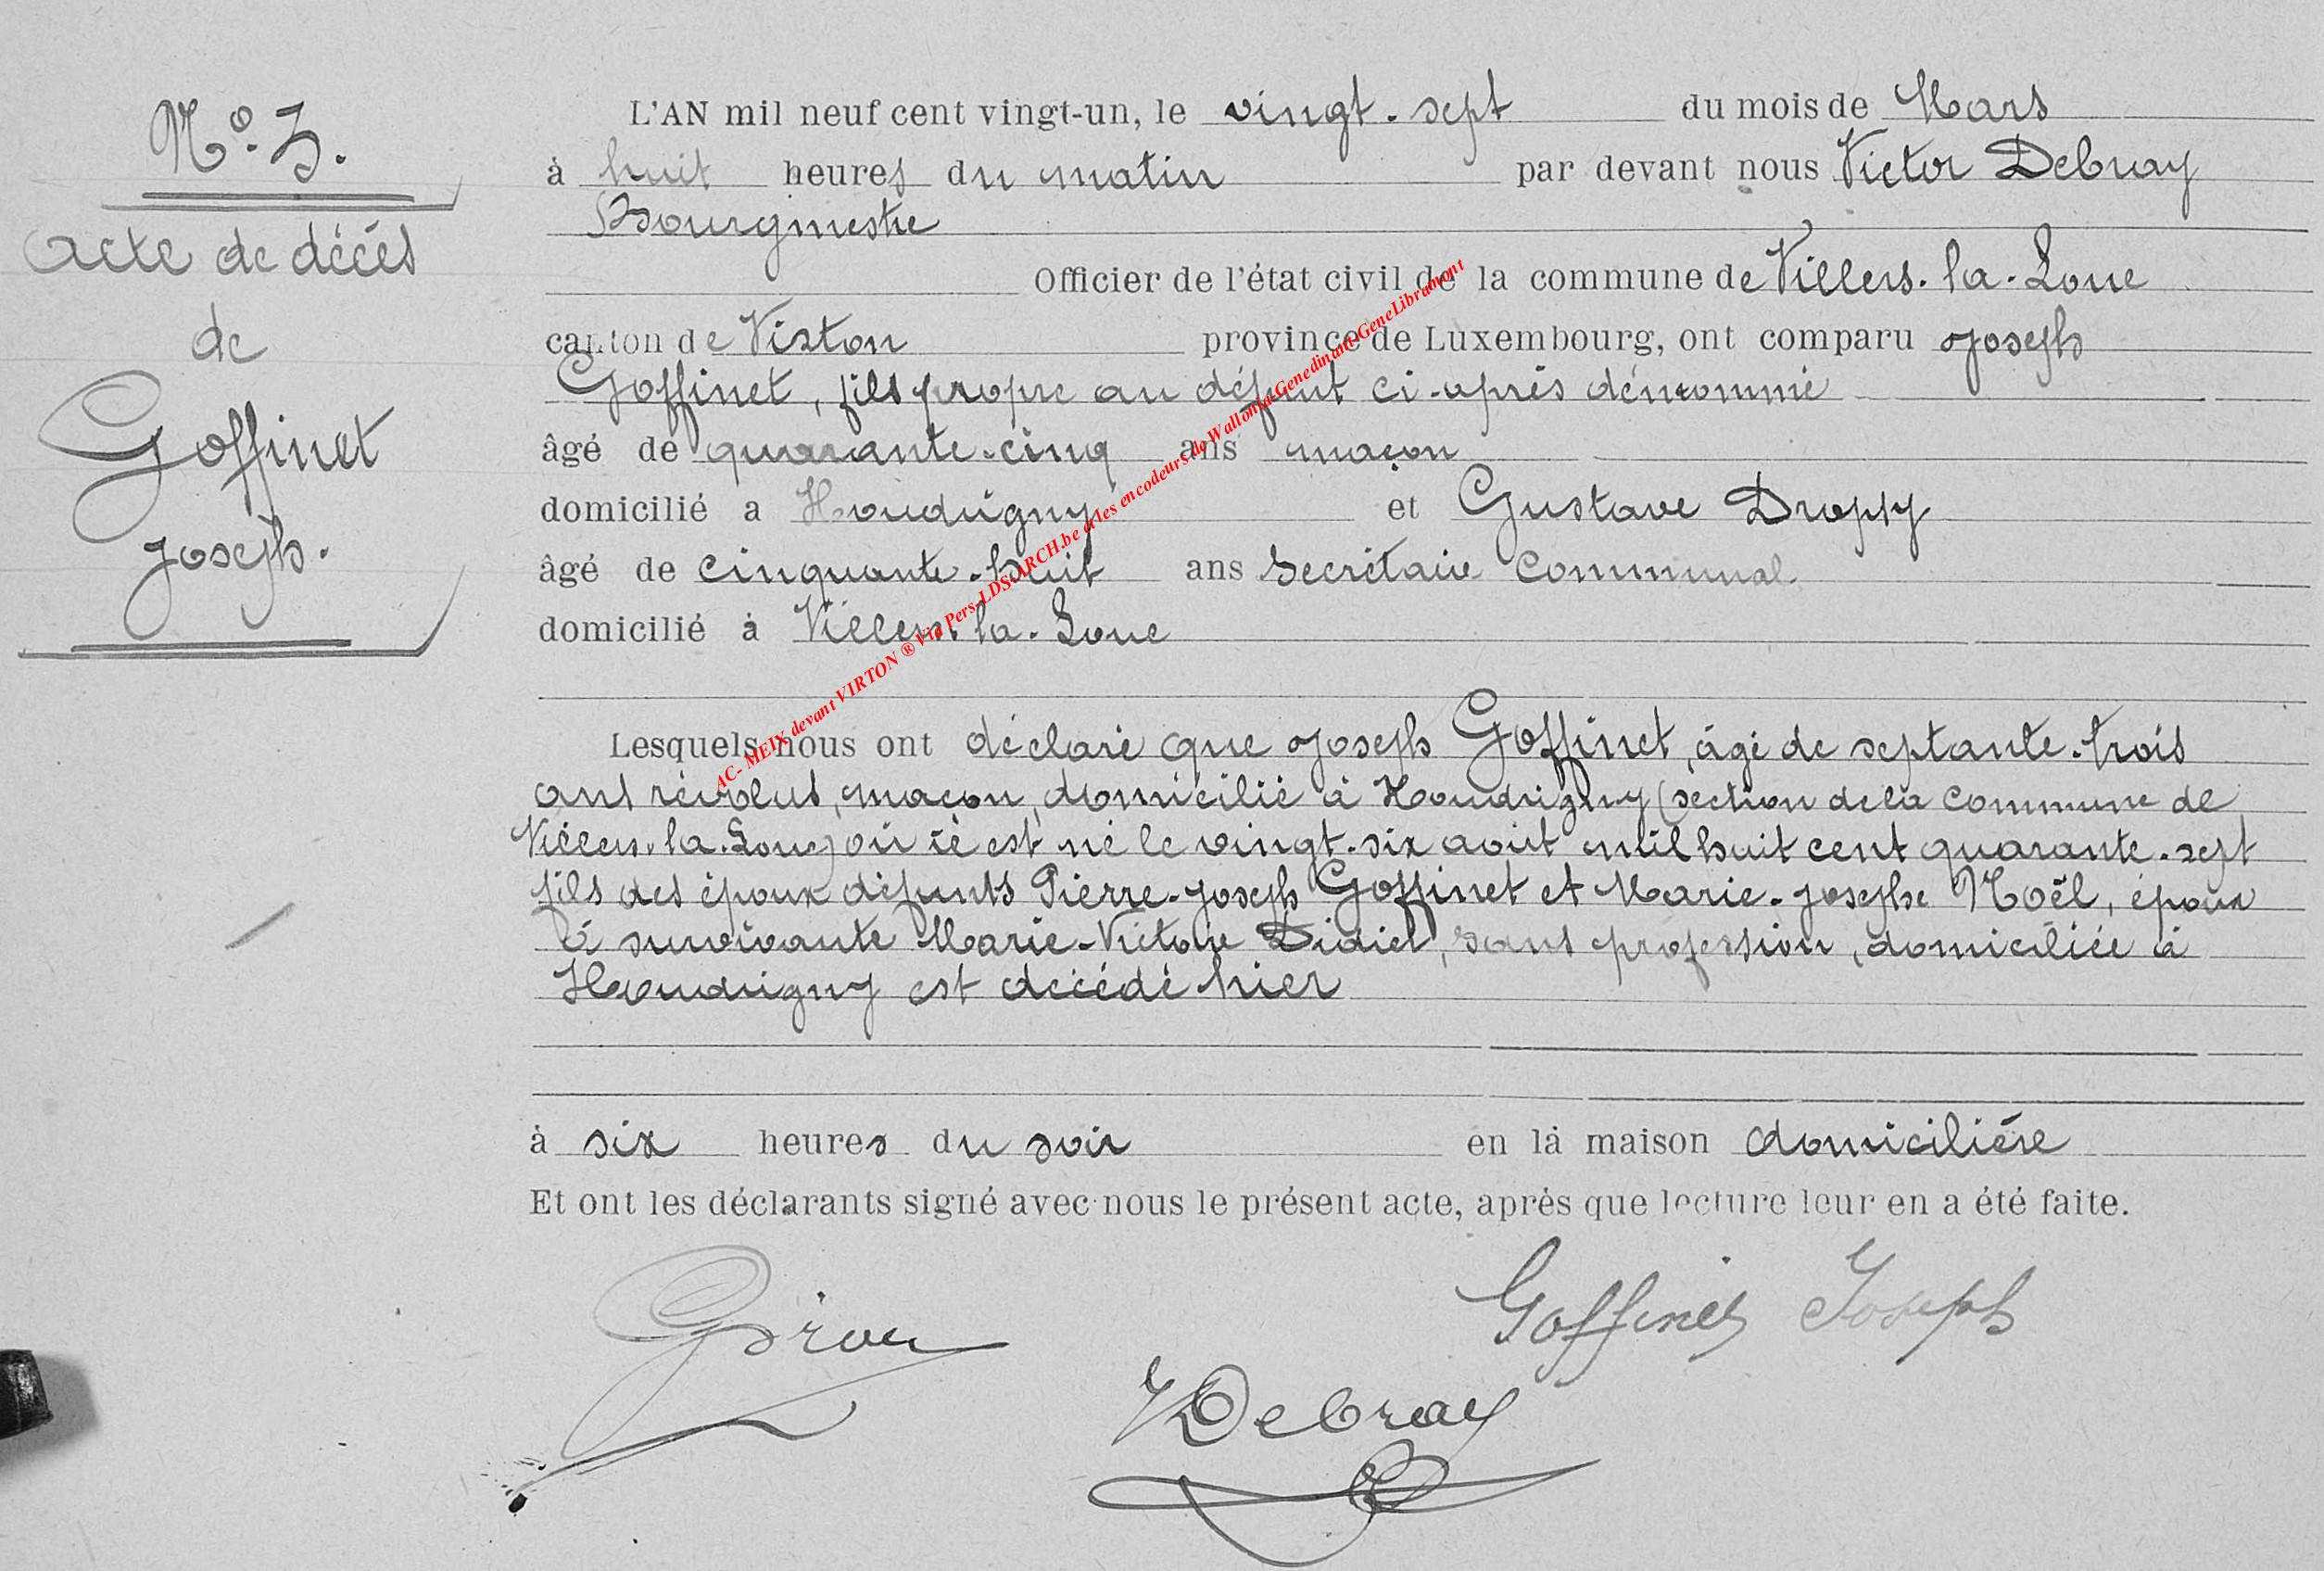 N° 3.
Acte de décès
de
Goffinet
Joseph.
L'AN mil neuf cent vingt-un, le vingt-sept du mois de Mars
à huit heures du matin par devant nous Victor Debray
Bourgmestre
Officier de l'état civil de la commune de Villers-la-Loue
canton de Virton province de Luxembourg, ont comparu Joseph
Goffinet, fils propre au défunt ci-après dénommé
âgé de quarante-cinq ans maçon
domicilié a Houdrigny et Gustave Dropsy
âgé de cinquante-huit ans Secrétaire Communal.
domicilié à Villers-la-Loue
Lesquels nous ont déclaré que Joseph Goffinet, âgé de septante-trois
ans révolus, maçon, domicilié à Houdrigny (section de la commune de
Villers-la-Loue) où il est né le vingt-six août mil huit cent quarante-sept
fils des époux défunts Pierre-Joseph Goffinet et Marie-Josephe Noël, époux
à survivante Marie-Victoire Didier, sans profession, domiciliée à
Houdrigny est décédé hier
à six heures du soir en la maison domicilière
Et ont les déclarants signé avec nous le présent acte, après que lecture leur en a été faite.
Goffinet Joseph
VDebray
AC- MEIX devant VIRTON ® Via Pers-LDS-ARCH.be et les encodeurs de Wallonia-Genedinant-GeneLibramont